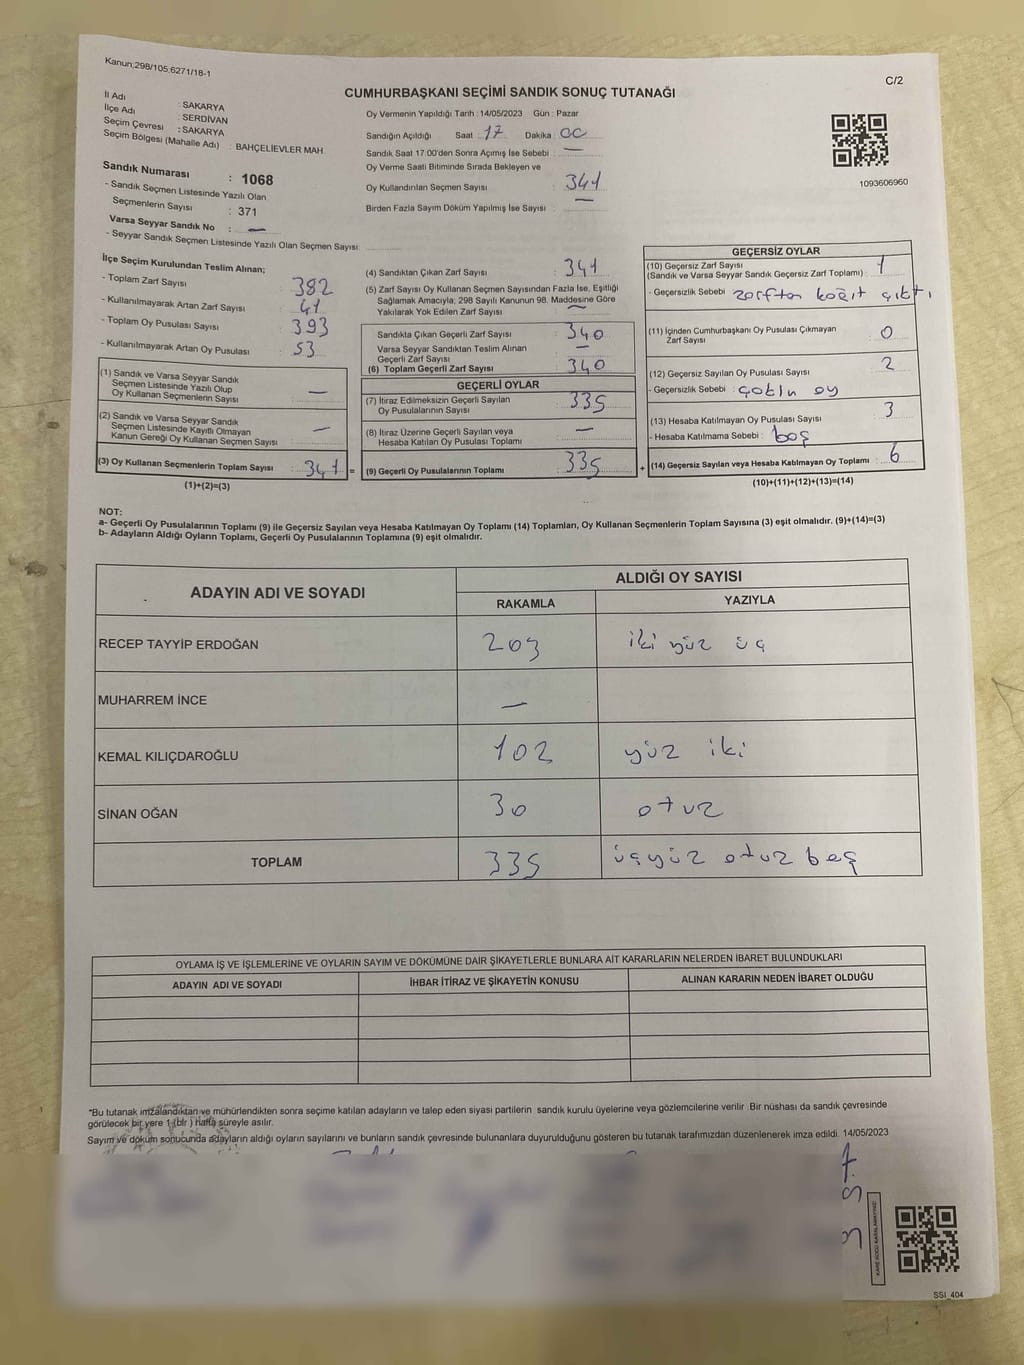 Kanun;298/105;6271/18-1
C/2
CUMHURBAŞKANI SEÇİMİ SANDIK SONUÇ TUTANAĞI
İl Adı : SAKARYA
İlçe Adı : SERDİVAN
Seçim Çevresi : SAKARYA
Seçim Bölgesi (Mahalle Adı) : BAHÇELİEVLER MAH.
Sandık Numarası : 1068
- Sandık Seçmen Listesinde Yazılı Olan
Seçmenlerin Sayısı : 371
Varsa Seyyar Sandık No : —
- Seyyar Sandık Seçmen Listesinde Yazılı Olan Seçmen Sayısı:
Oy Vermenin Yapıldığı Tarih :14/05/2023 Gün : Pazar
Sandığın Açıldığı Saat : 17 Dakika : 00
Sandık Saat 17.00'den Sonra Açımış İse Sebebi : —
Oy Verme Saati Bitiminde Sırada Bekleyen ve
Oy Kullandırılan Seçmen Sayısı : 341
Birden Fazla Sayım Döküm Yapılmış İse Sayısı : —
1093606960
İlçe Seçim Kurulundan Teslim Alınan;
- Toplam Zarf Sayısı : 382
- Kullanılmayarak Artan Zarf Sayısı : 41
- Toplam Oy Pusulası Sayısı : 393
- Kullanılmayarak Artan Oy Pusulası : 53
(1) Sandık ve Varsa Seyyar Sandık
Seçmen Listesinde Yazılı Olup
Oy Kullanan Seçmenlerin Sayısı : —
(2) Sandık ve Varsa Seyyar Sandık
Seçmen Listesinde Kayıtlı Olmayan
Kanun Gereği Oy Kullanan Seçmen Sayısı : —
(3) Oy Kullanan Seçmenlerin Toplam Sayısı : 341 =
(1)+(2)=(3)
(4) Sandıktan Çıkan Zarf Sayısı : 341
(5) Zarf Sayısı Oy Kullanan Seçmen Sayısından Fazla İse, Eşitliği
Sağlamak Amacıyla; 298 Sayılı Kanunun 98. Maddesine Göre
Yakılarak Yok Edilen Zarf Sayısı : —
Sandıkta Çıkan Geçerli Zarf Sayısı : 340
Varsa Seyyar Sandıktan Teslim Alınan
Geçerli Zarf Sayısı : —
(6) Toplam Geçerli Zarf Sayısı : 340
GEÇERLİ OYLAR
(7) İtiraz Edilmeksizin Geçerli Sayılan
Oy Pusulalarının Sayısı : 335
(8) İtiraz Üzerine Geçerli Sayılan veya
Hesaba Katılan Oy Pusulası Toplamı : —
(9) Geçerli Oy Pusulalarının Toplamı : 335 +
GEÇERSİZ OYLAR
(10) Geçersiz Zarf Sayısı
(Sandık ve Varsa Seyyar Sandık Geçersiz Zarf Toplamı) : 1
- Geçersizlik Sebebi : zarftan kağıt çıktı
(11) İçinden Cumhurbaşkanı Oy Pusulası Çıkmayan
Zarf Sayısı : 0
(12) Geçersiz Sayılan Oy Pusulası Sayısı : 2
- Geçersizlik Sebebi : çoklu oy
(13) Hesaba Katılmayan Oy Pusulası Sayısı : 3
- Hesaba Katılmama Sebebi : boş
(14) Geçersiz Sayılan veya Hesaba Katılmayan Oy Toplamı : 6
(10)+(11)+(12)+(13)=(14)
NOT:
a- Geçerli Oy Pusulalarının Toplamı (9) ile Geçersiz Sayılan veya Hesaba Katılmayan Oy Toplamı (14) Toplamları, Oy Kullanan Seçmenlerin Toplam Sayısına (3) eşit olmalıdır. (9)+(14)=(3)
b- Adayların Aldığı Oyların Toplamı, Geçerli Oy Pusulalarının Toplamına (9) eşit olmalıdır.
ADAYIN ADI VE SOYADI ALDIĞI OY SAYISI
RAKAMLA YAZIYLA
RECEP TAYYİP ERDOĞAN 203 iki yüz üç
MUHARREM İNCE —
KEMAL KILIÇDAROĞLU 102 yüz iki
SİNAN OĞAN 30 otuz
TOPLAM 335 üçyüz otuz beş
OYLAMA İŞ VE İŞLEMLERİNE VE OYLARIN SAYIM VE DÖKÜMÜNE DAİR ŞİKAYETLERLE BUNLARA AİT KARARLARIN NELERDEN İBARET BULUNDUKLARI
ADAYIN ADI VE SOYADI İHBAR İTİRAZ VE ŞİKAYETİN KONUSU ALINAN KARARIN NEDEN İBARET OLDUĞU
*Bu tutanak imzalandıktan ve mühürlendikten sonra seçime katılan adayların ve talep eden siyasi partilerin sandık kurulu üyelerine veya gözlemcilerine verilir. Bir nüshası da sandık çevresinde
görülecek bir yere 1 (bir) hafta süreyle asılır.
Sayım ve döküm sonucunda adayların aldığı oyların sayılarını ve bunların sandık çevresinde bulunanlara duyurulduğunu gösteren bu tutanak tarafımızdan düzenlenerek imza edildi. 14/05/2023
KARE KODU KARALAMAYINIZ!
SSI_404